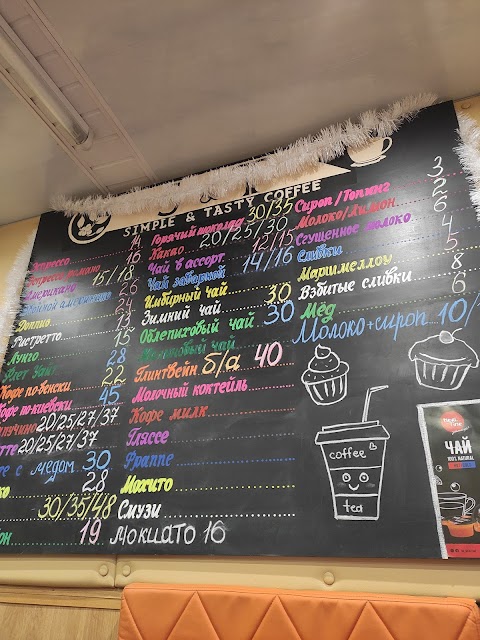 SIMPLE & TASTY COFFEE
спрессо 14
спрессо романо 16
Американо 15/18
американо 26
Доппио
Ристретто
Лунго 15
Флет Уайт 28
Кофе по-венски 22
Кофе по-киевски 45
пучино 20/25/27/37
тте 20/25/27/37
е с медом 30
ко 28
30/35/48
19
Горячий шоколад 30/35
Какао 20/25/30
Чай в ассорт. 12/15
Чай заварной 14/16
Имбирный чай 30
Зимний чай
Облепиховый чай 30
чай
Глинтвейн б/а 40
Молочный коктейль
Кофе милк
Гляссе
Фраппе
Мохито
Смузи
Мокиато 16
Сироп/Топинг 3
Молоко/Лимон 2
Сгущенное молоко 6
Сливки 4
Маршмеллоу 5
Взбитые сливки 8
Мёд 6
Молоко+сироп 10/
coffee
tea
ЧАЙ
100% NATURAL